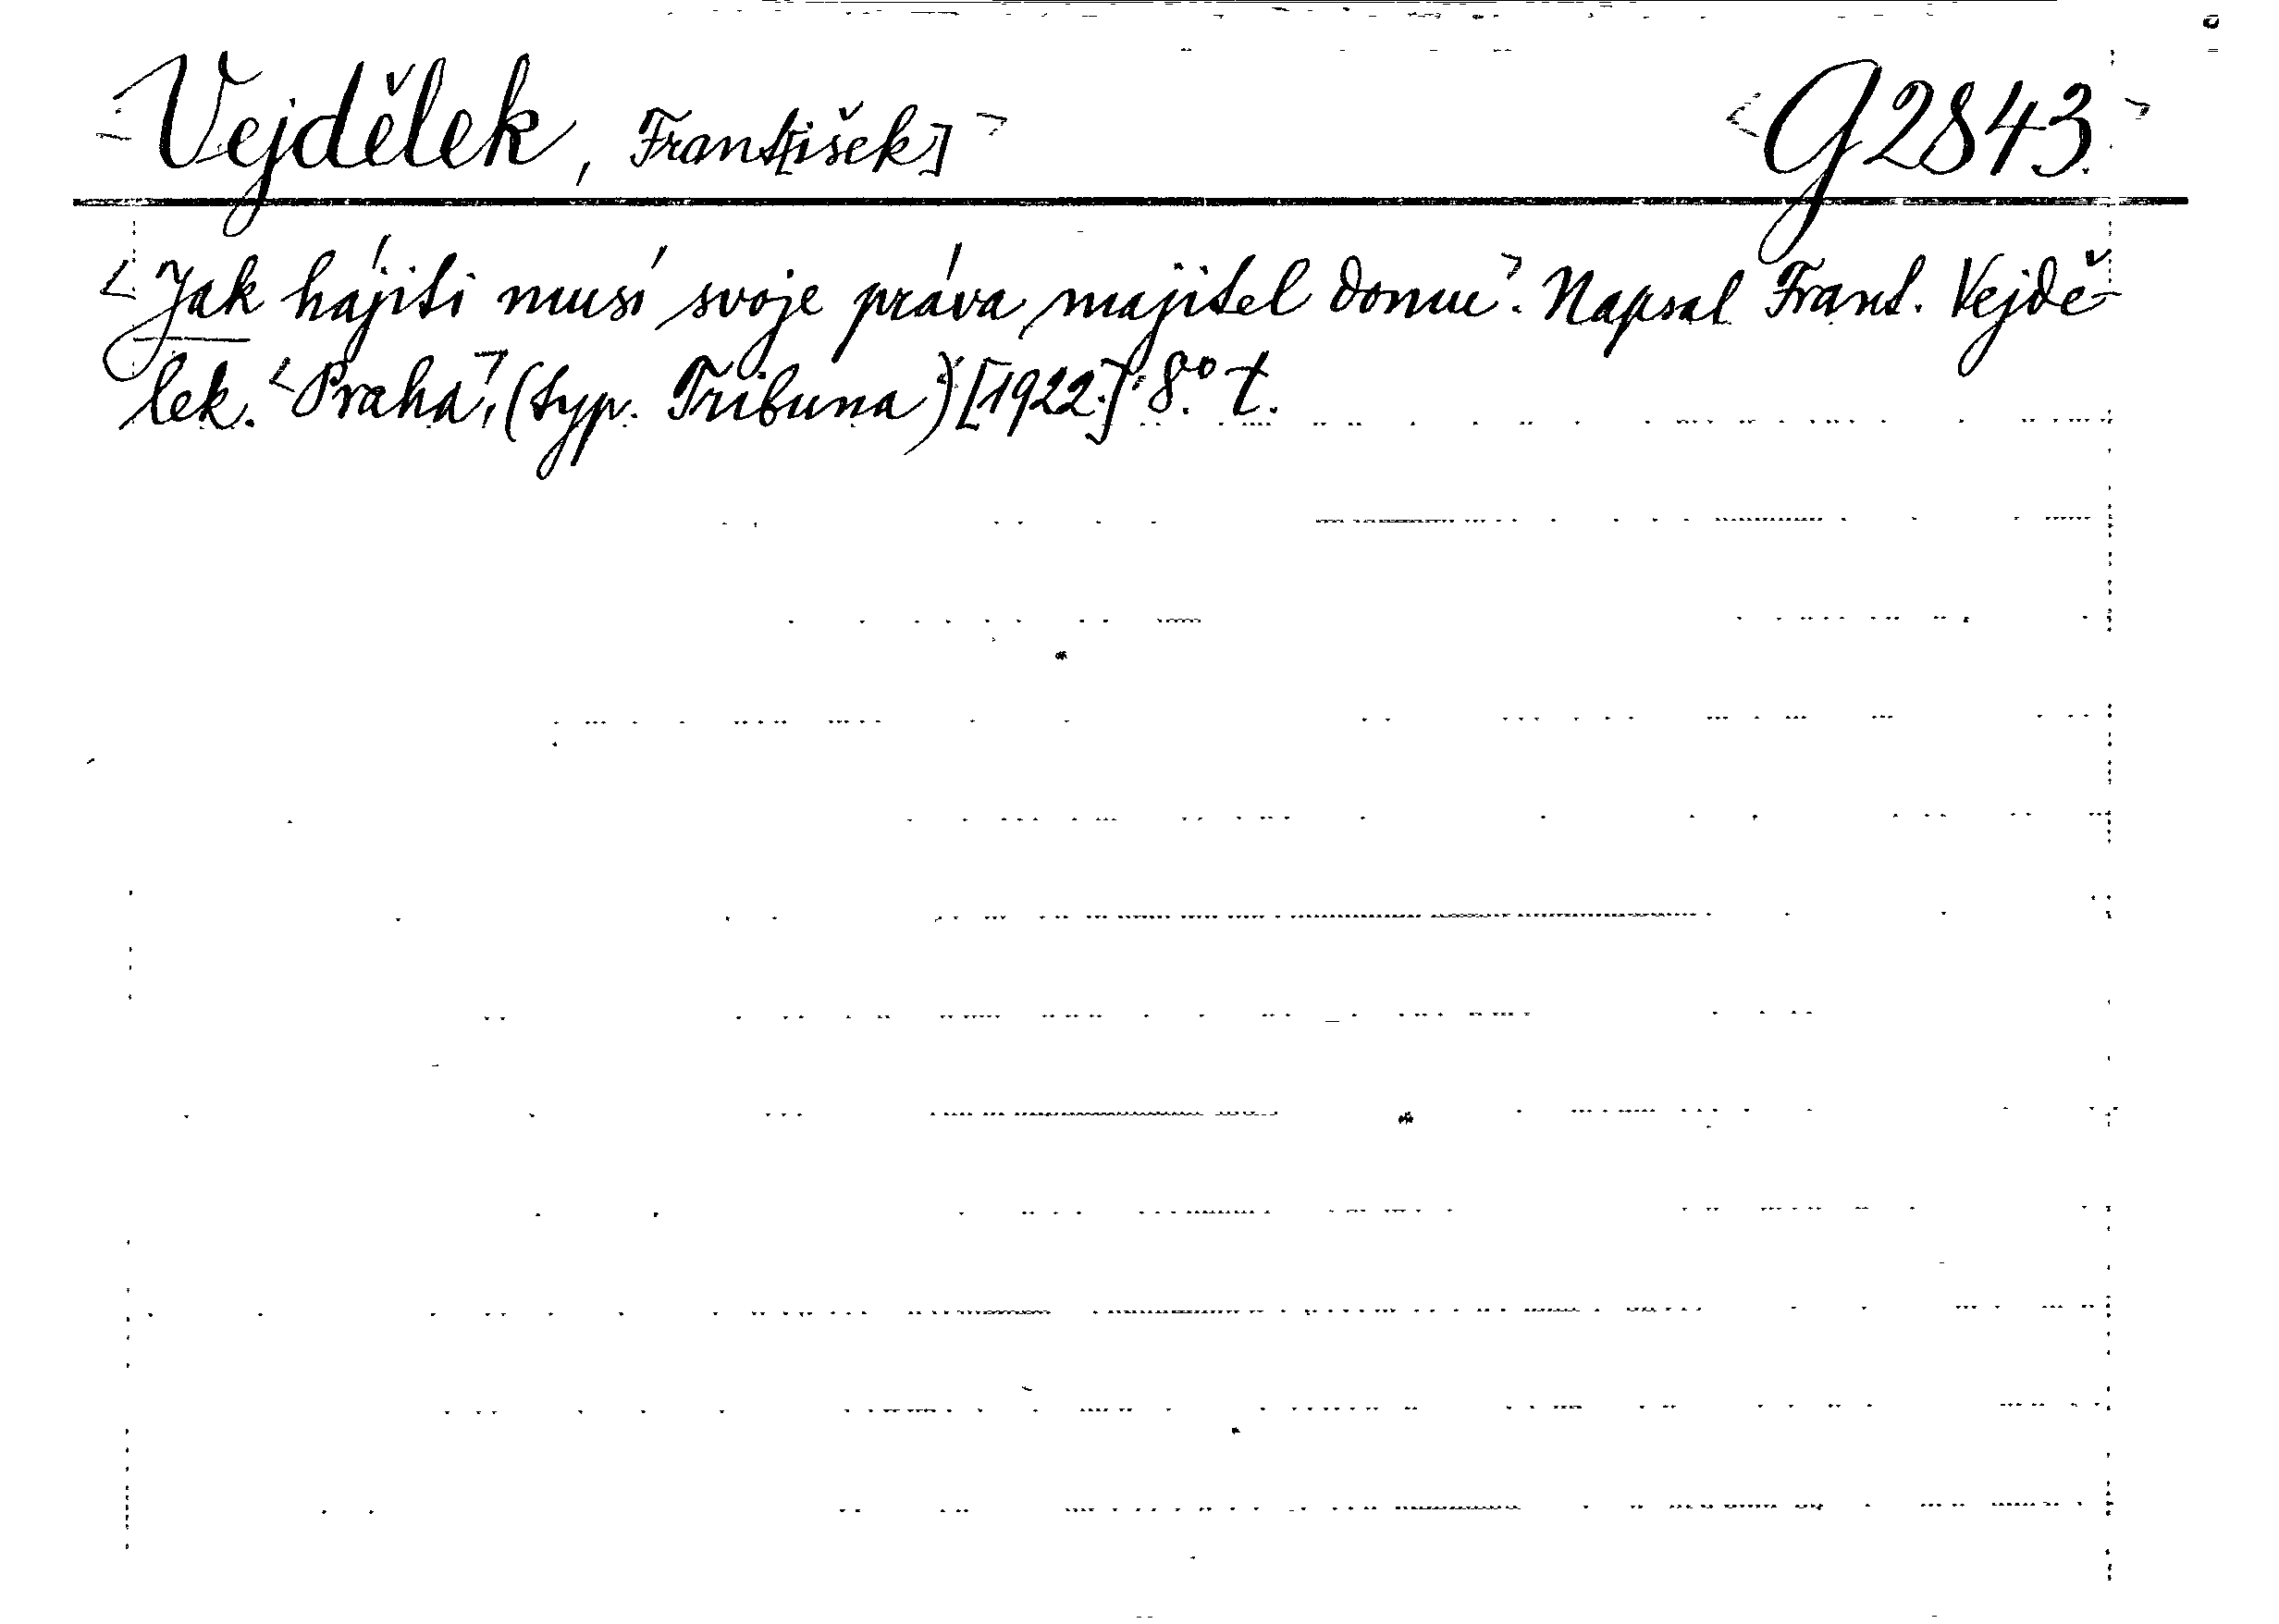 Vejdělek, Frant[išek] G 2843.
Jak hájiti musí svoje práva majitel domu. Napsal Frant. Vejdě-
lek. Praha, (typ. Tribuna) [1922.] 8.° t.